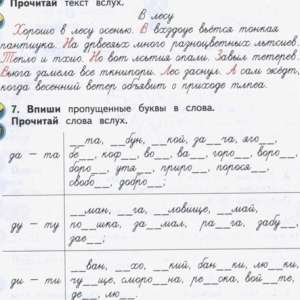 Прочитай текст вслух.
В лесу
Хорошо в лесу осенью. В вхздоуе вьётся тонкая
пантиука. На дрвееьях много разноцветных льтсиев.
Тепло и тхио. Но вот лсытия опали. Завыл тетерев.
Вьюга замела все ткнипори. Лес заснул. А сам ждёт,
когда весенний ветер объявит о приходе тлпеа.
7. Впиши пропущенные буквы в слова.
Прочитай слова вслух.
да — та
__та, __бун, __кой, за__ча, яго__,
бе__, коф__, во__, ва__, горо__, воро__,
боро__, утя__, приро__, порося__,
свобо__, добро__;
ду — ту
__ман, __га, __ловище, __май,
по__шка, за__мал, ра__га, забу__,
зае__;
ди — ти
__ван, __хо, __кий, бан__ки, лю__ки,
чу__ще, сморо__на, ре__ска, вой__те,
де__, лю__;